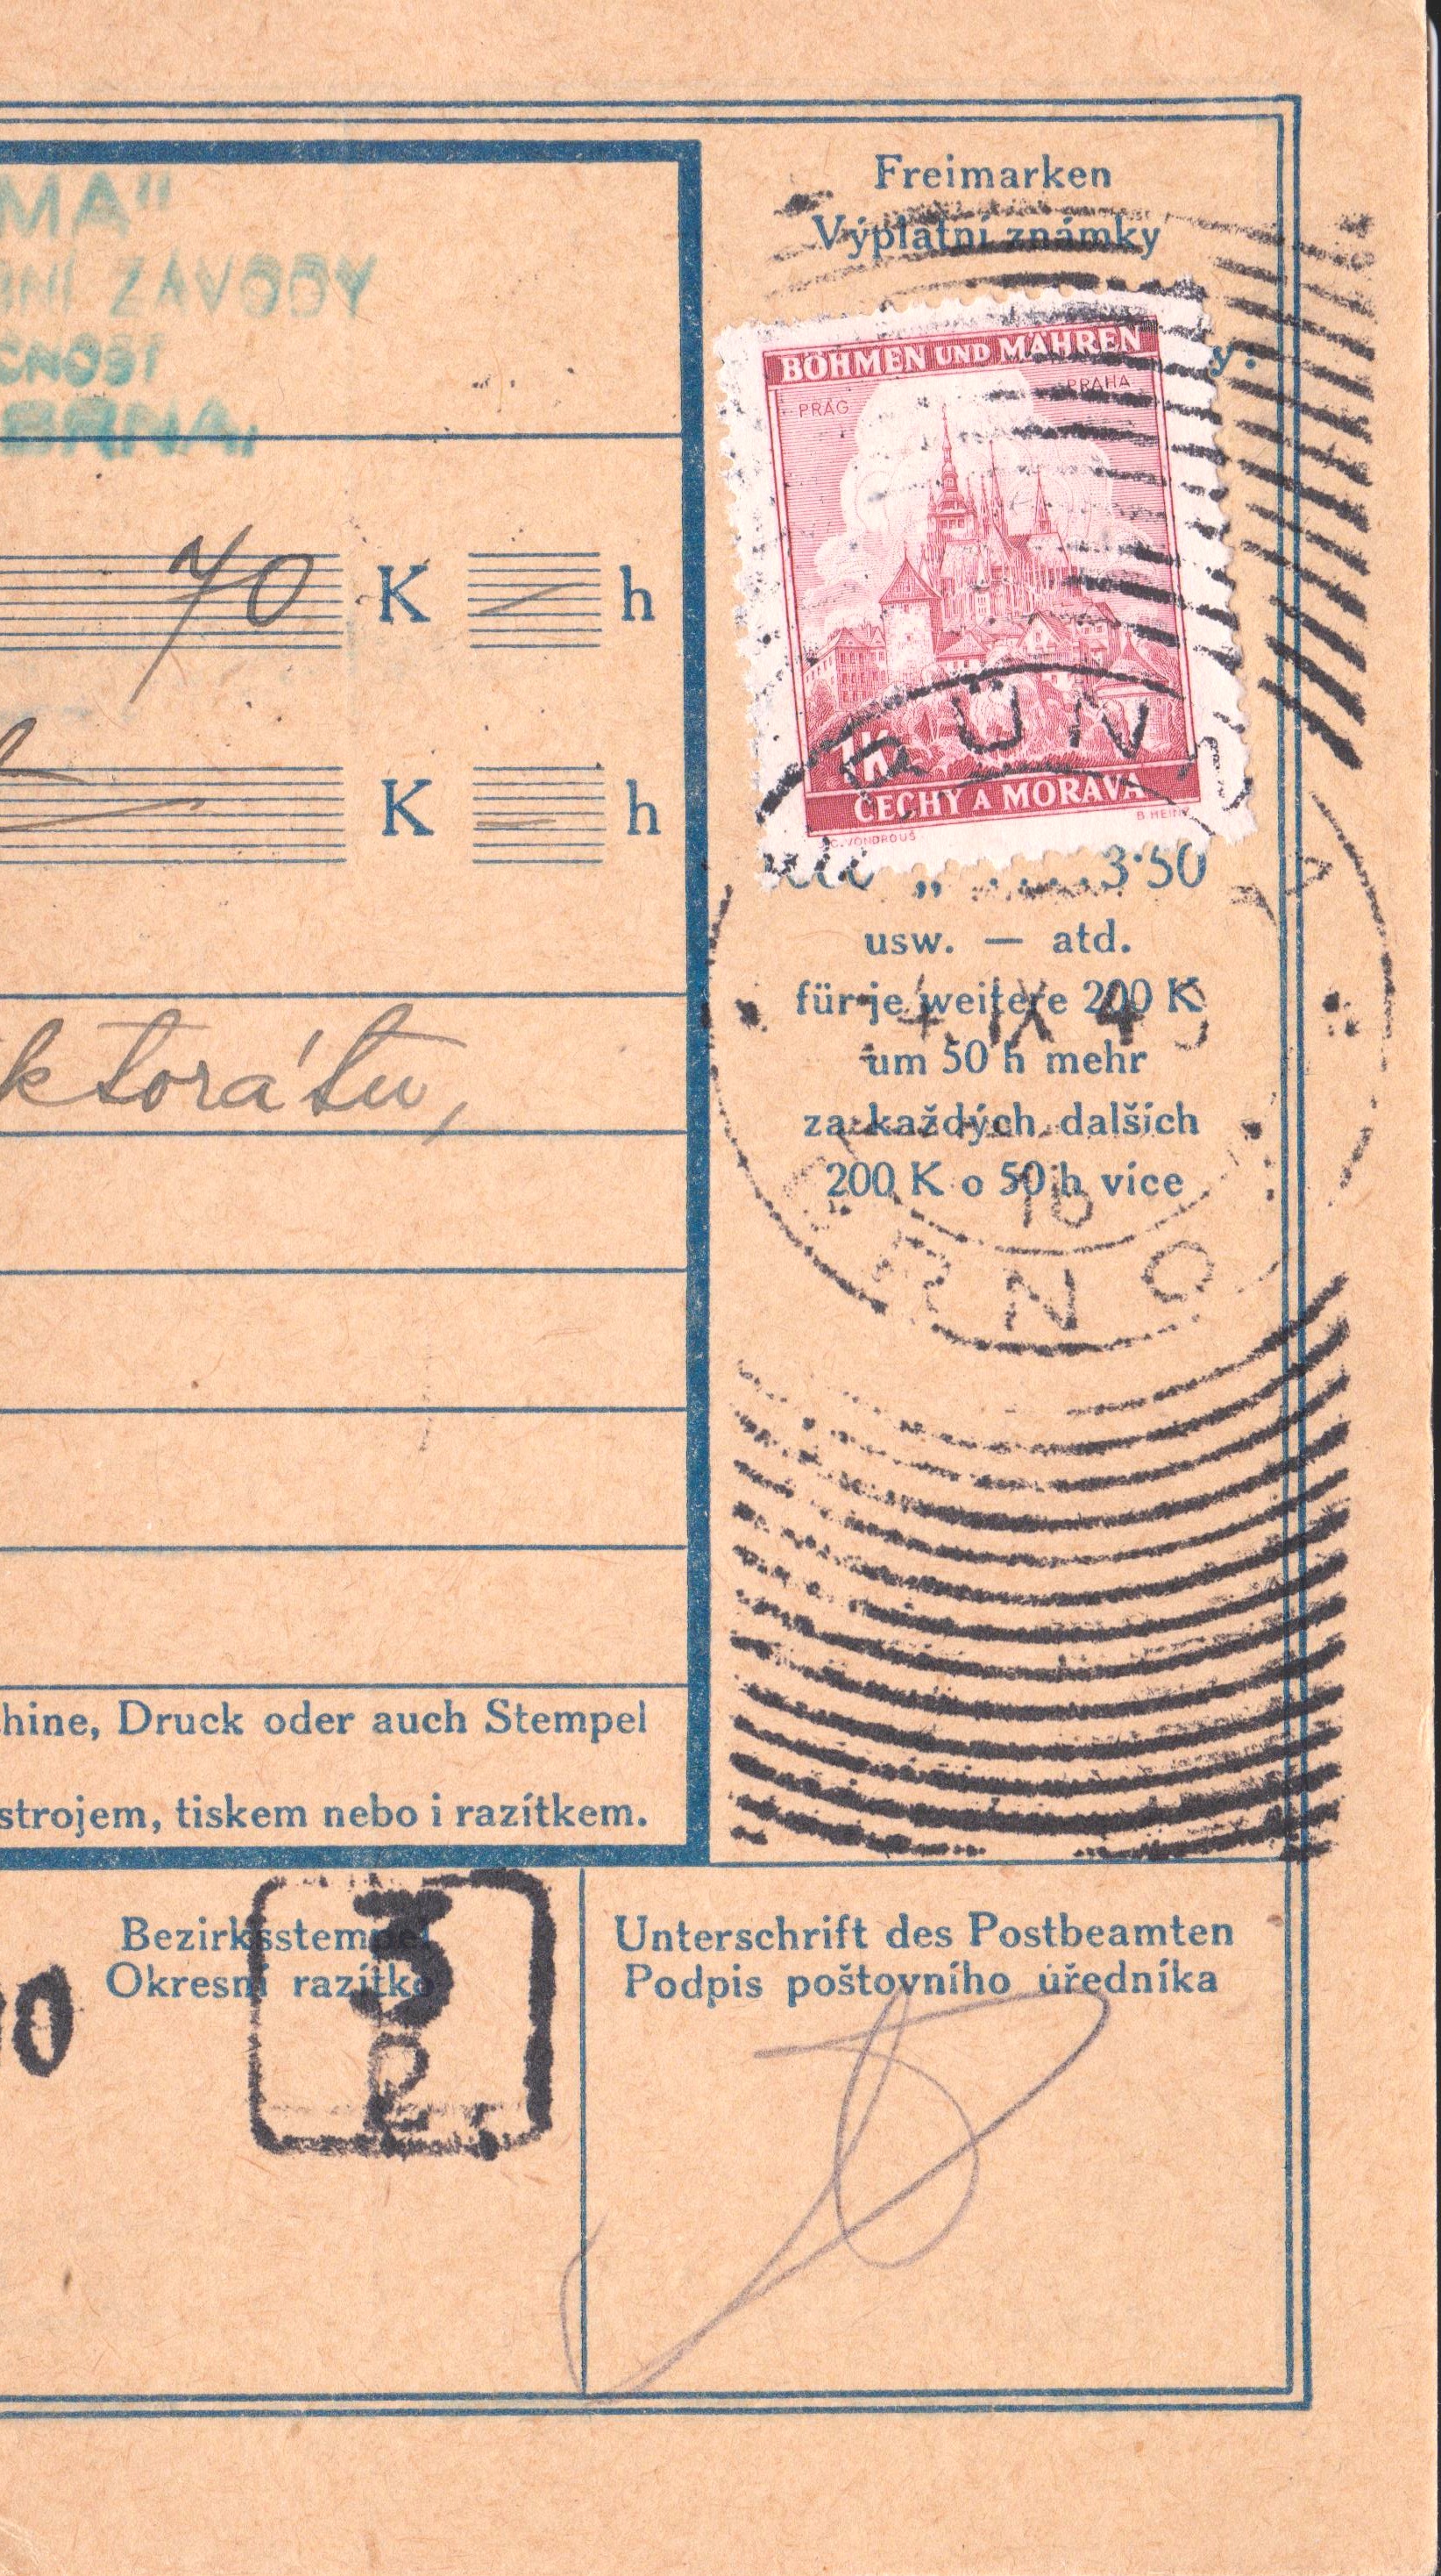 MA"
ZÁVODY
BRNA,
Freimarken
Výplatní známky
BÖHMEN UND MÄHREN
PRAG PRAHA
1K
ČECHY A MORAVA
C. VONDROUŠ
70 K h
K h
3·50
usw. — atd.
für je weitere 200 K
um 50 h mehr
za každých dalších
200 K o 50 h více
IX 4
BRNO
hine, Druck oder auch Stempel
strojem, tiskem nebo i razítkem.
Bezirksstempel
Okresní razítko
3
2
Unterschrift des Postbeamten
Podpis poštovního úředníka